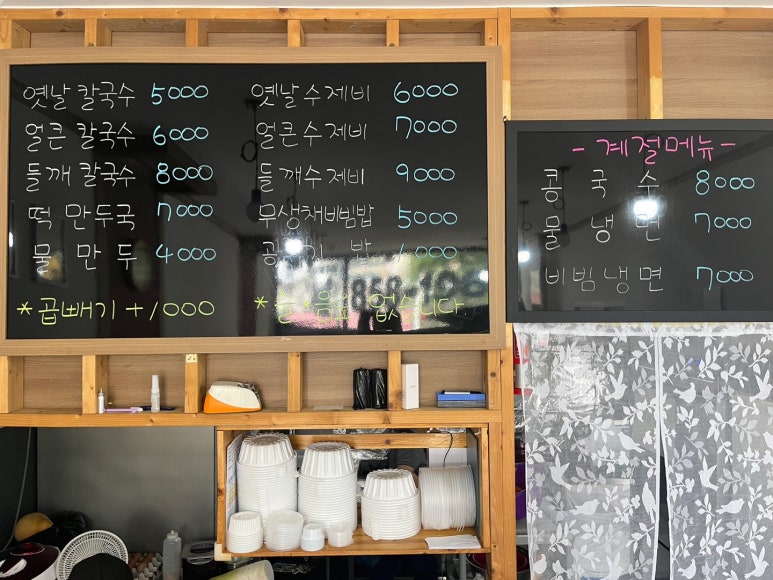 옛날칼국수 5000
얼큰칼국수 6000
들깨칼국수 8000
떡만두국 7000
물만두 4000
*곱빼기+1000
옛날수제비 6000
얼큰수제비 7000
들깨수제비 9000
무생채비빔밥 5000
밥 1000
없습니다.
-계절메뉴-
콩국수 8000
물냉면 7000
비빔냉면 7000